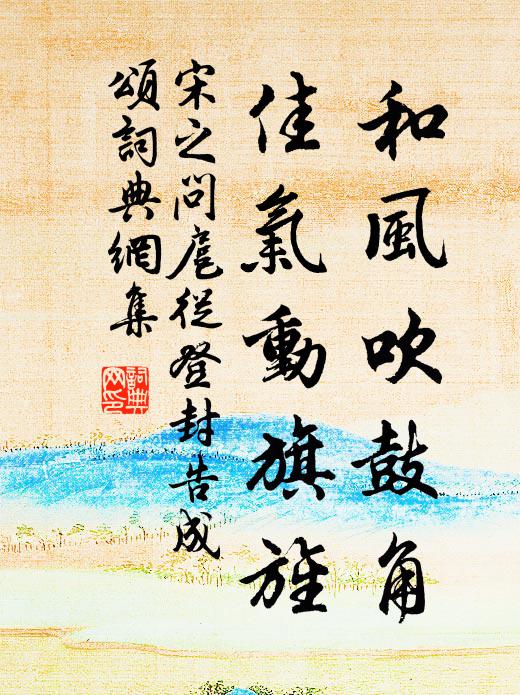 和風吹鼓角
佳氣動旗旌
宋之問扈從登封告成
頌詞典網集
詞典
网印